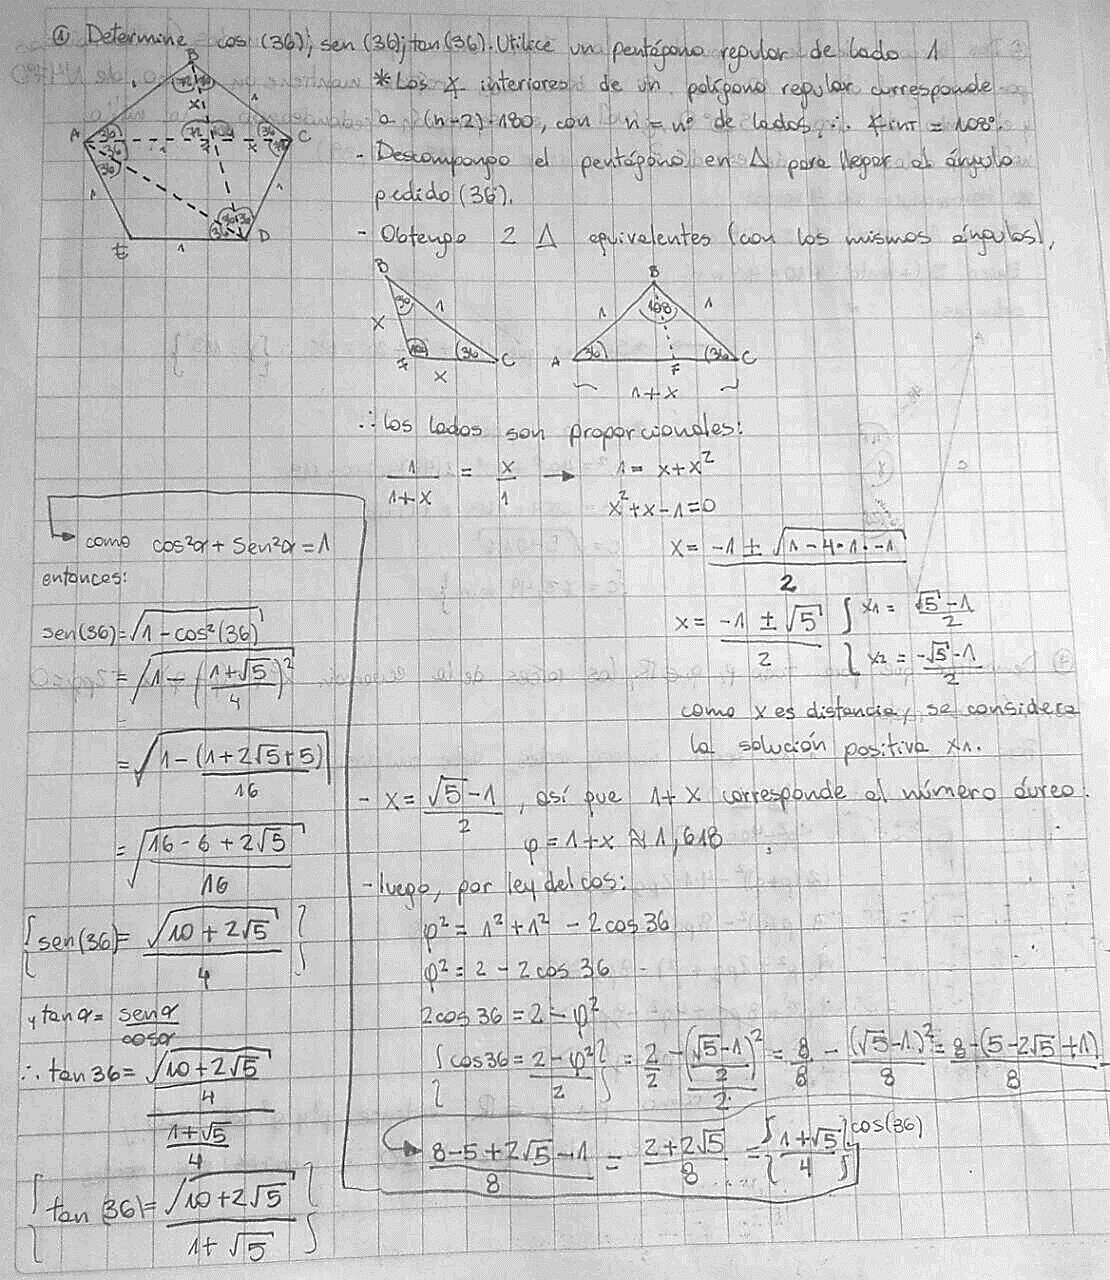 ① Determine cos (36); sen (36); tan (36). Utilice un pentágono regular de lado 1
* Los ∡ interiores de un polígono regular corresponde
a (n-2)·180, con n = nº de lados ∴ ∡INT = 108°.
- Descompongo el pentágono en Δ para llegar al ángulo
pedido (36).
- Obtengo 2 Δ equivalentes (con los mismos ángulos),
B
A
C
E
D
1
B
X
1
36
C
X
B
1
108
1
A
36
F
36
C
1+X
∴ los lados son proporcionales:
1/(1+x) = x/1 → 1 = x + x²
x² + x - 1 = 0
x = (-1 ± √(1 - 4·1·-1))/2
x = (-1 ± √5)/2 { x1 = (√5 - 1)/2
{ x2 = (-√5 - 1)/2
como x es distancia, se considera
la solución positiva x1.
- x = (√5 - 1)/2, así que 1+x corresponde al número áureo.
φ = 1+x ≈ 1,618
- luego, por ley del cos:
φ² = 1² + 1² - 2cos36
φ² = 2 - 2cos 36
2cos 36 = 2 - φ²
{cos36 = (2 - φ²)/2} = 2/2 - ((√5 - 1)/2)²/2 = 8/8 - (√5 - 1)²/8 = (8 - (5 - 2√5 + 1))/8
(8 - 5 + 2√5 - 1)/8 = (2 + 2√5)/8 = {(1 + √5)/4} cos(36)
como cos²α + Sen²α = 1
entonces:
sen(36) = √(1 - cos²(36))
= √(1 - ((1+√5)/4)²)
= √(1 - (1 + 2√5 + 5)/16)
= √((16 - 6 + 2√5)/16)
{sen(36) = √(10 + 2√5)/4}
y tan α = sen α/cos α
∴ tan 36 = (√(10 + 2√5)/4)/((1 + √5)/4)
{tan (36) = √(10 + 2√5)/(1 + √5)}